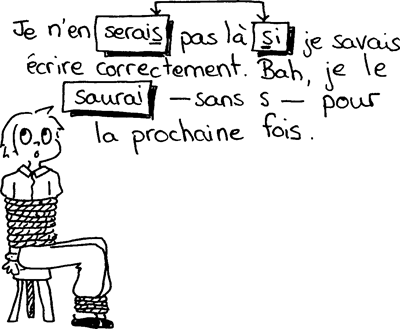 Je n'en serais pas là si je savais
écrire correctement. Bah, je le
saurai — sans s — pour
la prochaine fois.